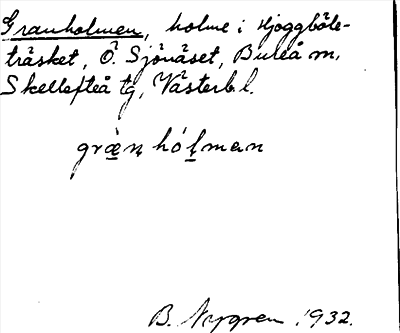 Granholmen, holme i Hjoggböle-
träsket, Ö. Sjönäset, Bureå sn,
Skellefteå tg, Västerb. l.
græ̀n hólman
B. Nygren 1932.